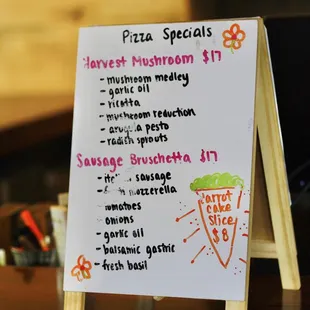 Pizza Specials
Harvest Mushroom $17
- mushroom medley
- garlic oil
- ricotta
- mushroom reduction
- arugula pesto
- radish sprouts
Sausage Bruschetta $17
- sausage
- mozzerella
- tomatoes
- onions
- garlic oil
- balsamic gastric
- fresh basil
carrot
cake
slice
$8